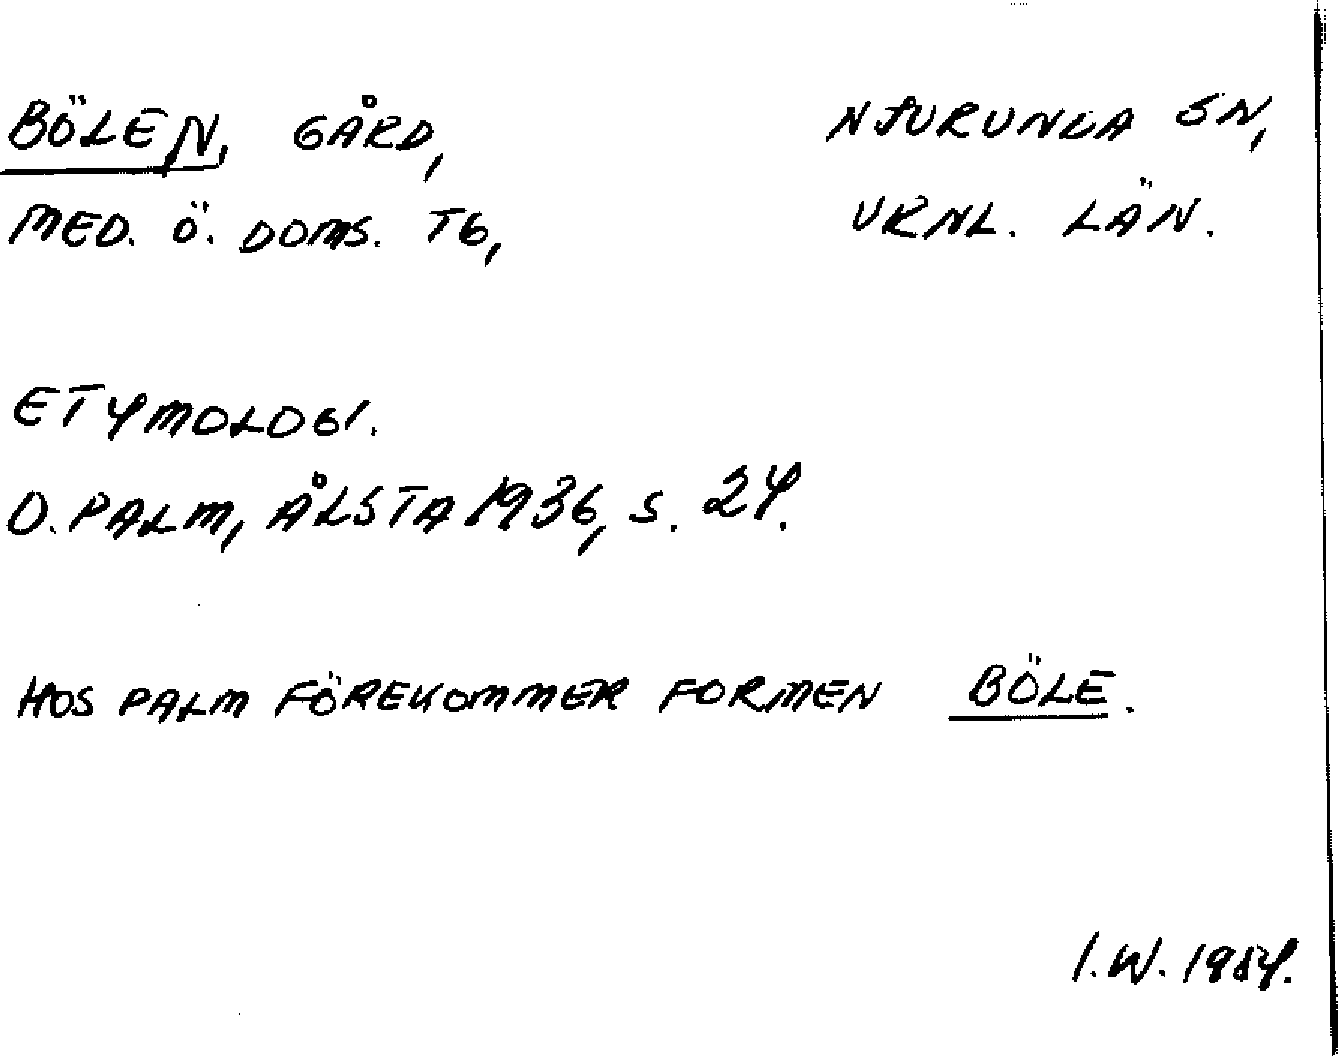 BÖLEN, GÅRD, NJURUNDA SN,
MED. Ö. DOMS. TG, VRNL. LÄN.
ETYMOLOGI.
D. PALM, ÅLSTA 1936, S. 24.
HOS PALM FÖREKOMMER FORMEN BÖLE.
I.W. 1954.